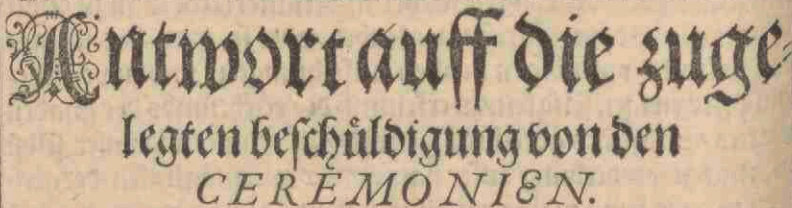 Antwort auff die zuge-
legten beschůldigung von den
CEREMONIEN.